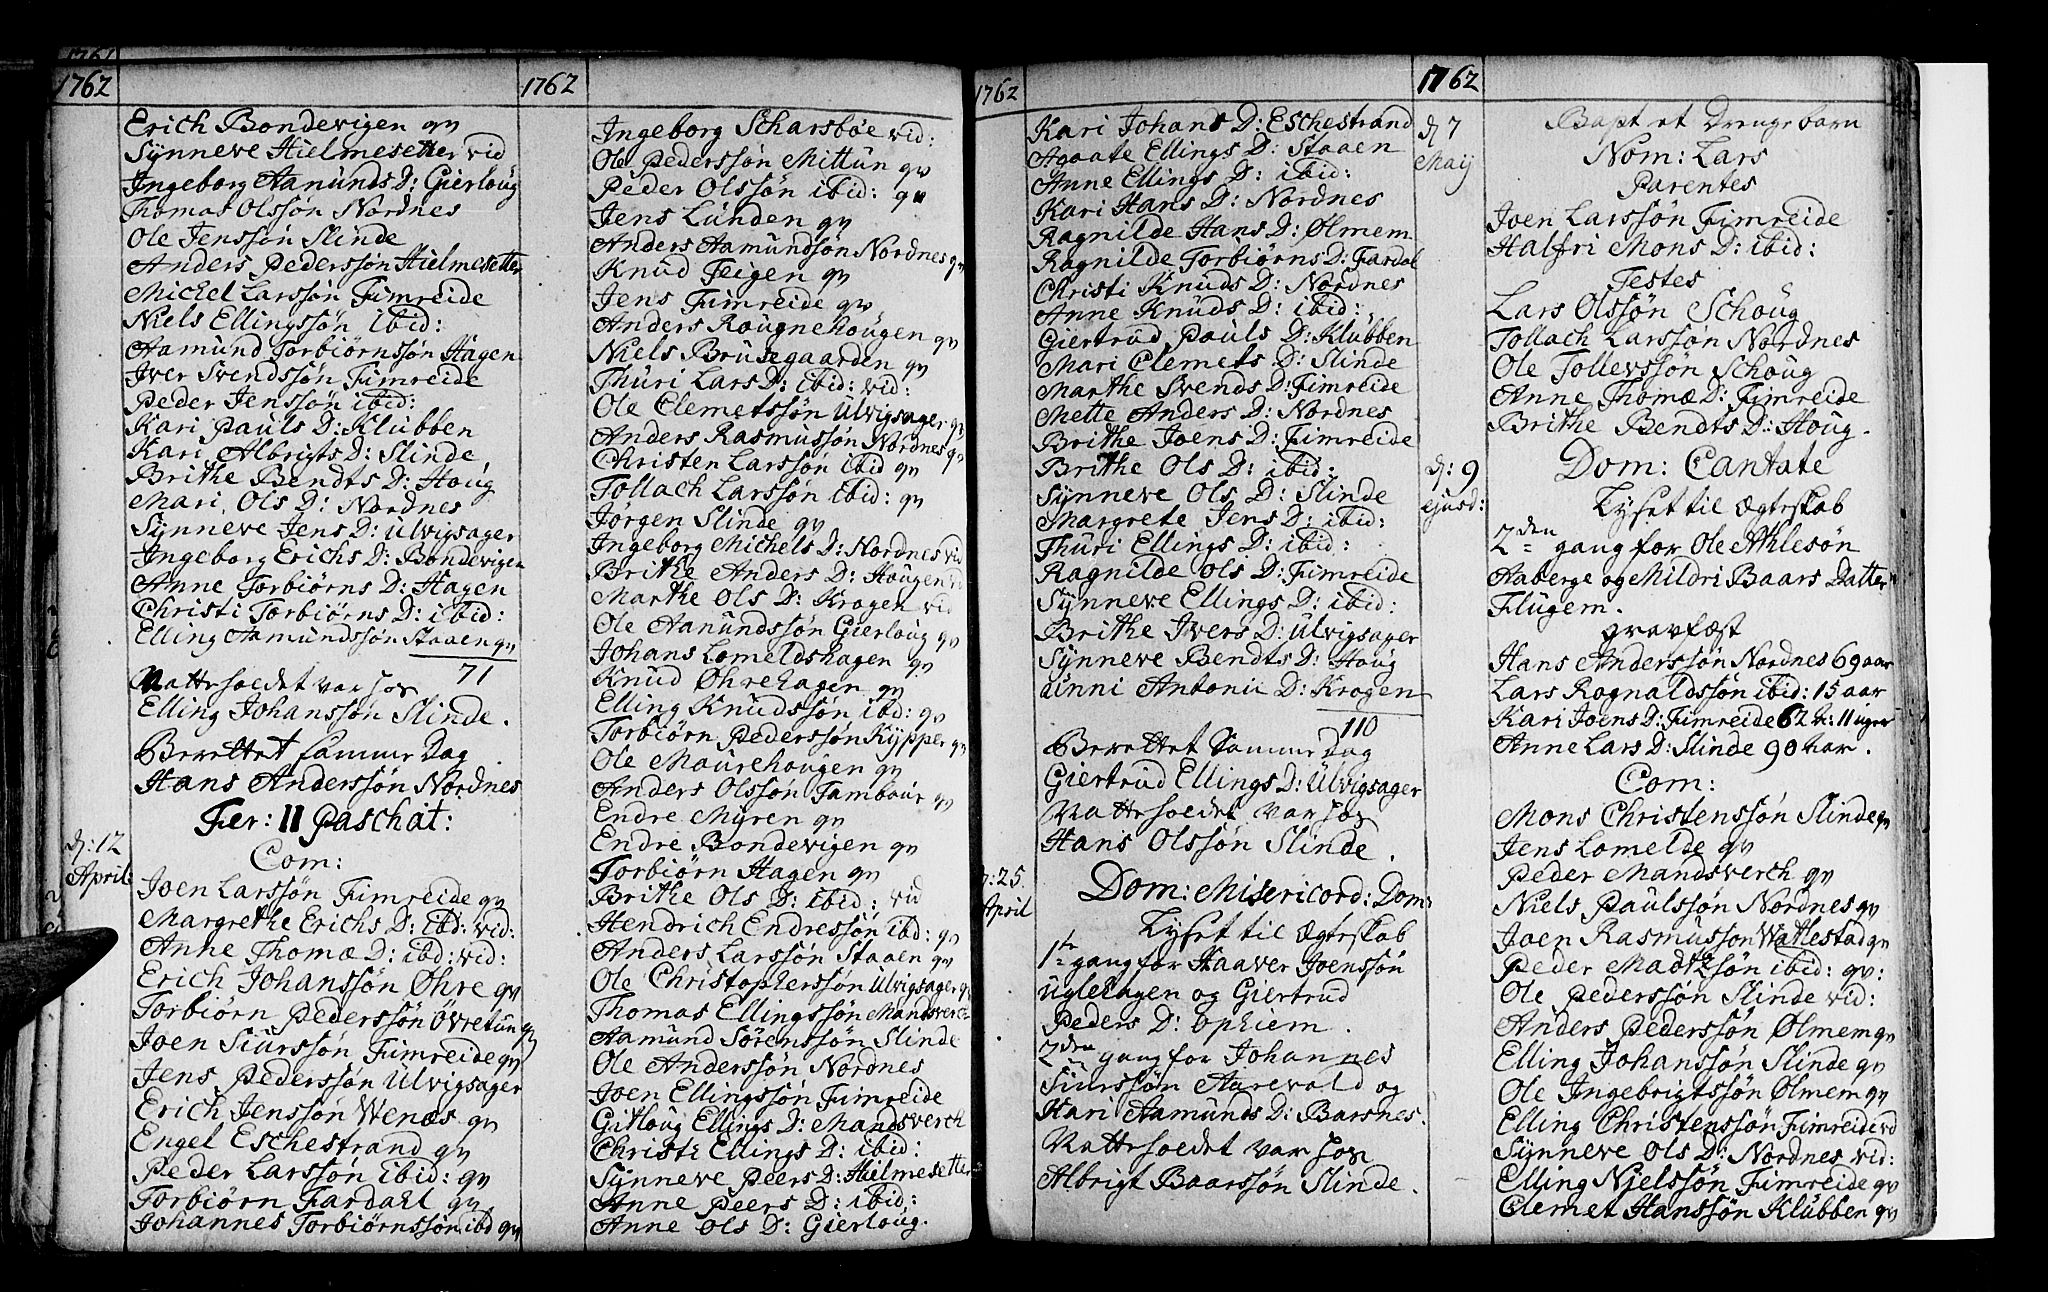 1761
1762
Erich Bondevigen qv
Synneve Hielmesetter vid
Ingeborg Aamunds D: Gierloug
Thomas Olssøn Nordnes
Ole Jenssøn Slinde
Anders Pederssøn Hielmesetter
Michel Larssøn Fimreide
Niels Ellingssøn ibid:
Aamund Torbiørnssøn Hagen
Iver Svendssøn Fimreide
Peder Jenssøn ibid:
Kari Pauls D: Klubben
Kari Albrigts D: Slinde
Brithe Bendts D: Houg
Mari Ols D: Nordnes
Synneve Jens D: Ulvigsager
Ingeborg Erichs D: Bondevigen
Anne Torbiørns D: Hagen
Christi Torbiørns D: ibid:
Elling Aamundssøn Staaen qv
71
Natteroedet var hos
Elling Johanssøn Slinde.
Berettet samme Dag
Hans Anderssøn Nordnes
Fer: II Paschat:
d: 12 April:
Com:
Joen Larssøn Fimreide qv
Margrethe Erichs D: ibd: vid:
Anne Thomæ D: ibd: vid:
Erich Johanssøn Øhre qv
Torbiørn Pederssøn Øvretun qv
Joen Siurssøn Fimreide qv
Jens Pederssøn Ulvigsager
Erich Jenssøn Wenæs qv
Engel Eschestrand qv
Peder Larssøn ibid: qv
Torbiørn Fardahl qv
Johannes Torbiørnssøn ibd qv
1762
Ingeborg Scharsbøe vid:
Ole Pederssøn Mittun qv
Peder Olssøn ibid: qv
Jens Lunden qv
Anders Aamundssøn Nordnes qv
Knud Feigen qv
Jens Fimreide qv
Anders Rougnehougen qv
Niels Brusegaarden qv
Thuri Lars D: ibid: vid:
Ole Clemetssøn Ulvigsager qv
Anders Rasmussøn Nordnes qv
Christen Larssøn ibid qv
Tollach Larssøn ibid: qv
Jørgen Slinde qv
Ingeborg Michels D: Nordnes vid
Brithe Anders D: Hougen vid
Marthe Ols D: Krogen vid
Ole Aamundssøn Gierloug qv
Johans Lomeldshagen qv
Knud Øhrehagen qv
Elling Knudssøn ibd: qv
Torbiørn Pederssøn Kypper qv
Ole Maurehougen qv
Anders Olssøn Tambour qv
Endre Myren qv
Endre Bondevigen qv
Torbiørn Hagen qv
Brithe Ols D: ibid: vid
Hendrich Endressøn ibd: qv
Anders Larssøn Staaen qv
Ole Christopherssøn Ulvigsager qv
Thomas Ellingssøn Mandsverch
Aamund Sørenssøn Slinde
Ole Anderssøn Nordnes
Joen Ellingssøn Fimreide
Gitloug Ellings D: Mandsverch
Christi Ellings D: ibid:
Synneve Peers D: Hielmesetter
Anne Peers D: ibid:
Anne Ols D: Gierloug.
1762
Kari Johans D: Eschestrand
Agaate Ellings D: Staaen
Anne Ellings D: ibid:
Kari Hans D: Nordnes
Ragnilde Hans D: Ølmem
Ragnilde Torbiørns D: Fardal
Christi Knuds D: Nordnes
Anne Knuds D: ibid:
Giertrud Pauls D: Klubben
Mari Clemets D: Slinde
Marthe Svends D: Fimreide
Mette Anders D: Nordnes
Brithe Joens D: Fimreide
Brithe Ols D: ibid:
Synneve Ols D: Slinde
Margrete Jens D: ibid:
Thuri Ellings D: ibid:
Ragnilde Ols D: Fimreide
Synneve Ellings D: ibid:
Brithe Ivers D: Ulvigsager
Synneve Bendts D: Houg
unni Antonii D: Krogen
110
Berettet Samme Dag
Giertrud Ellings D: Ulvigsager
Natteroedet var hos
Hans Olssøn Slinde.
d: 25. April
Dom: Misericord: Dom:
Lyset til Ægteskab
1te gang for Haaver Joenssøn
Uglehagen og Giertrud
Peders D: Opheim.
2den gang for Johannes
Siurssøn Aarevold og
Kari Aamunds D: Barsnes.
Natteroedet var hos
Albrigt Baarssøn Slinde.
1762
d 7 Maij
Bapt et Drengebarn
Nom: Lars
Parentes
Joen Larssøn Fimreide
Halfri Mons D: ibid:
Testes
Lars Olssøn Schoug
Tollach Larssøn Nordnes
Ole Tollevssøn Schoug
Anne Thomæ D: Fimreide
Brithe Bendts D: Houg.
d: 9 ejusd:
Dom: Cantate
Lyset til Ægteskab
2den gang for Ole Athlesøn
Aaberge og Mildri Baars Datter
Flugem.
gravfæst
Hans Anderssøn Nordnes 69 aar
Lars Rognaldssøn ibid: 15 aar
Kari Joens D: Fimreide 62 a: 11 uger
Anne Lars D: Slinde 90 aar.
Com:
Mons Christenssøn Slinde qv
Jens Lomelde qv
Peder Mandsverch qv
Niels Paulssøn Nordnes qv
Joen Rasmusson Wattestad qv
Peder Madtzsøn ibid: qv:
Ole Pederssøn Slinde vid:
Anders Pederssøn Ølmem qv
Elling Johanssøn Slinde qv
Ole Ingebrigtssøn Ølmem qv
Elling Christenssøn Fimreide vd
Synneve Ols D: Nordnes vid:
Elling Njelssøn Fimreide qv
Clemet Hanssøn Klubben qv